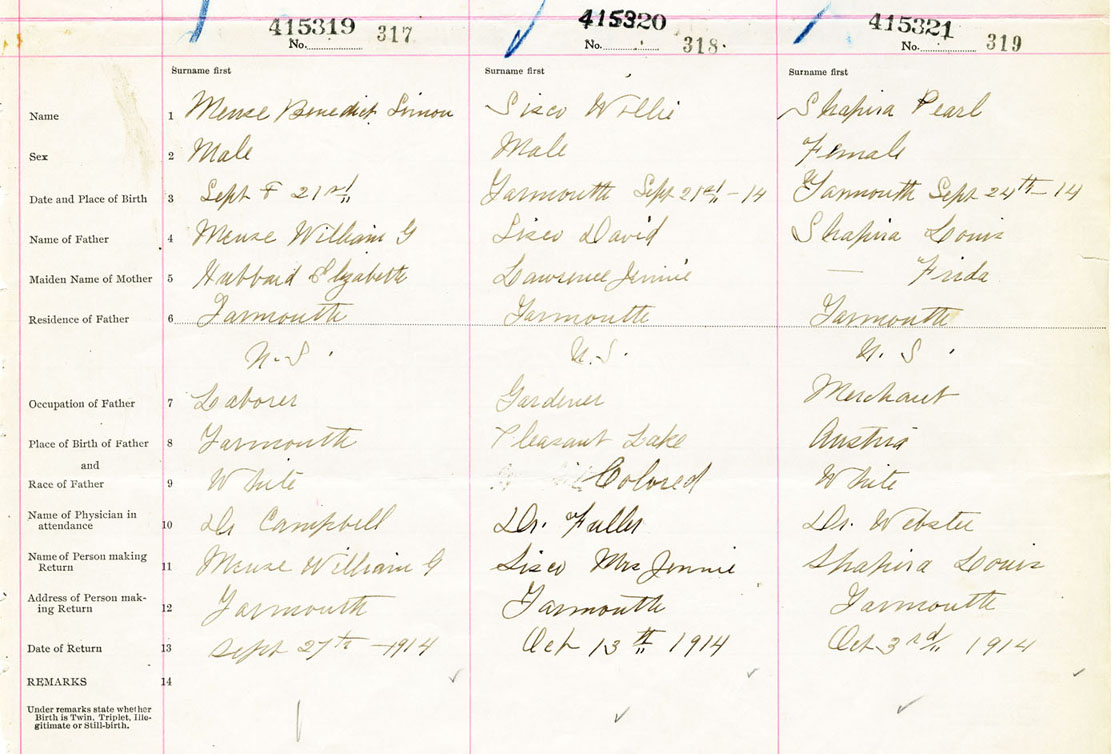 415319 317 415320 318. 415321 319
No. No. No.
Surname first Surname first Surname first
Name 1 Meuse Benedict Simon Sisco Willie Shapira Pearl
Sex 2 Male Male Female
Date and Place of Birth 3 Sept 21st Yarmouth Sept 21st - 14 Yarmouth Sept 24th - 14
Name of Father 4 Meuse William G Sisco David Shapira Louis
Maiden Name of Mother 5 Hubbard Elizabeth Lawrence Jennie — Frida
Residence of Father 6 Yarmouth Yarmouth Yarmouth
N. S. N. S. N. S.
Occupation of Father 7 Laborer Gardener Merchant
Place of Birth of Father 8 Yarmouth Pleasant Lake Austria
and
Race of Father 9 White Colored White
Name of Physician in
attendance 10 Dr Campbell Dr. Fuller Dr. Webster
Name of Person making
Return 11 Meuse William G Sisco Mrs Jennie Shapira Louis
Address of Person mak-
ing Return 12 Yarmouth Yarmouth Yarmouth
Date of Return 13 Sept 27th - 1914 Oct 13th 1914 Oct 3rd 1914
REMARKS 14
Under remarks state whether
Birth is Twin, Triplet, Ille-
gitimate or Still-birth.